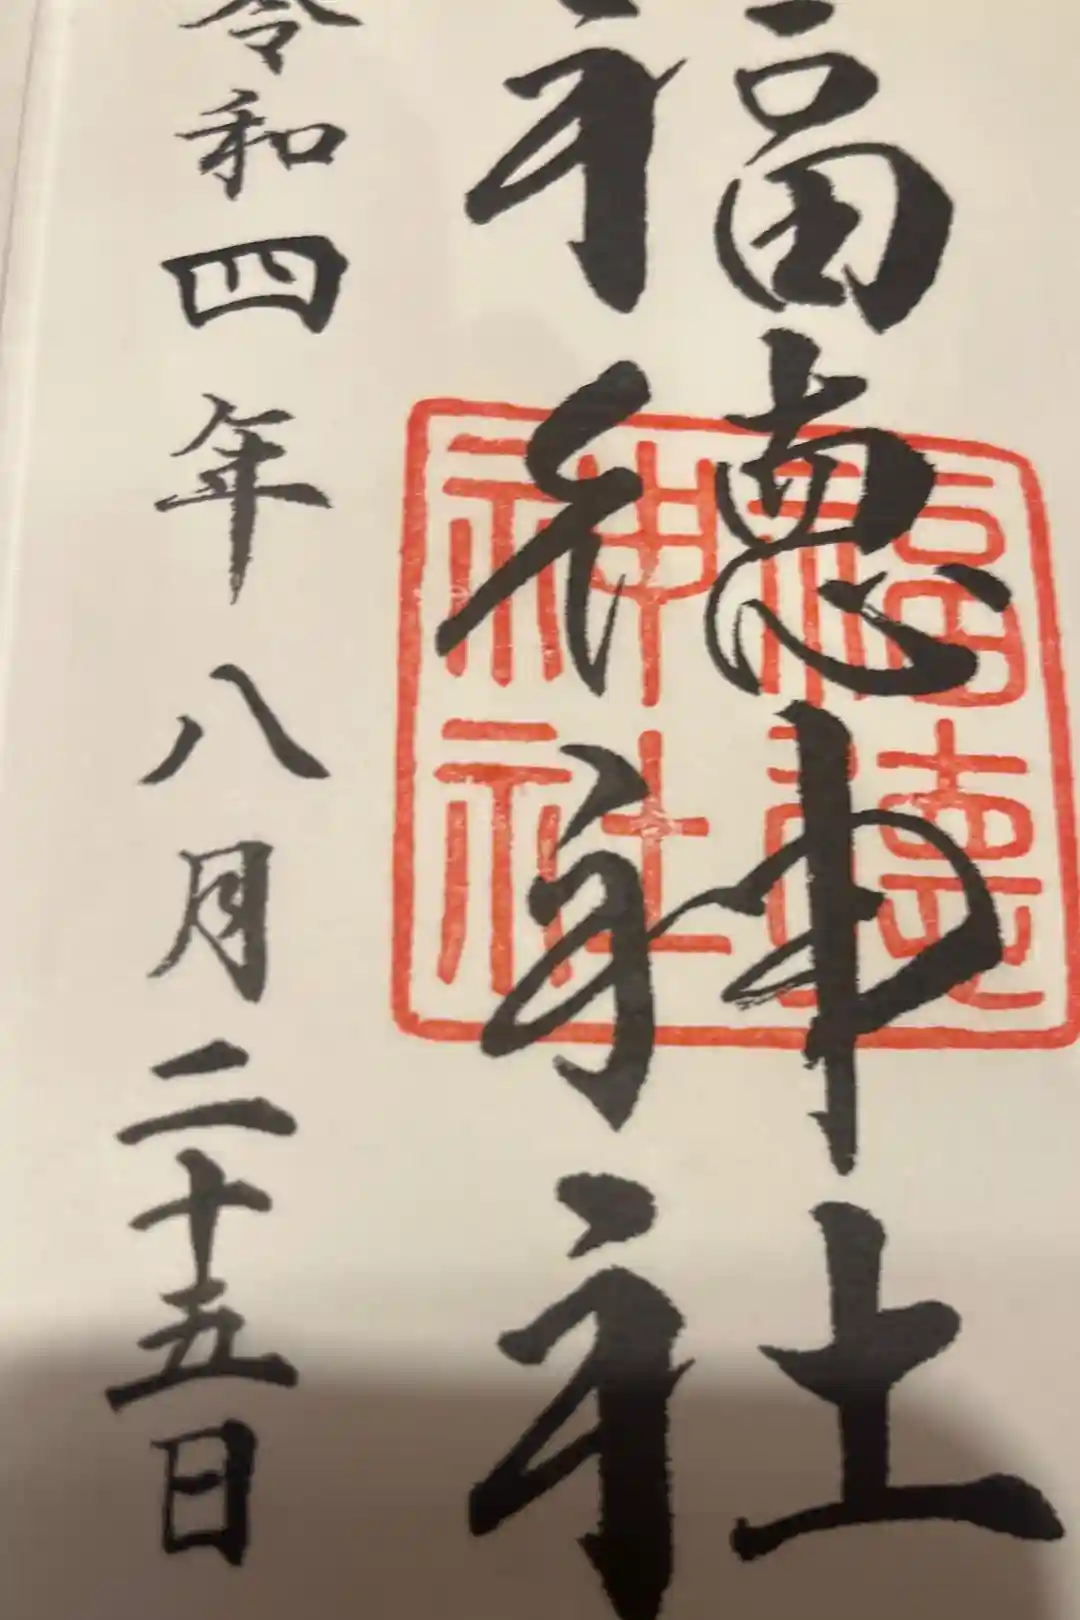 福徳神社
福徳神社
令和四年八月二十五日